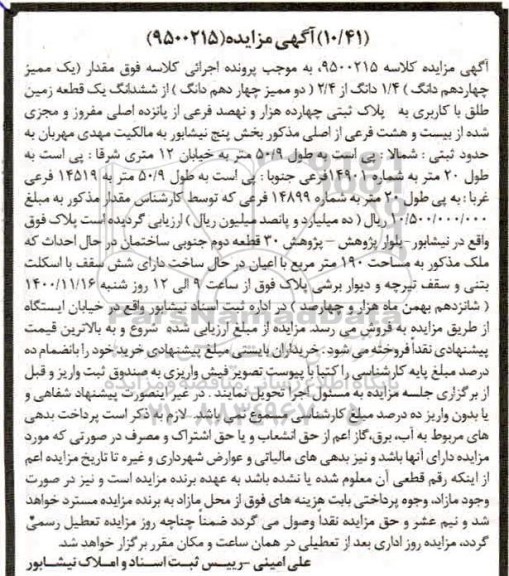 (۱۰/۴۱) آگهی مزایده (۹۵۰۰۲۱۵)
آگهی مزایده کلاسه ۹۵۰۰۲۱۵، به موجب پرونده اجرائی کلاسه فوق مقدار (یک ممیز
چهاردهم دانگ) ۱/۴ دانگ از ۲/۴ ( دو ممیز چهار دهم دانگ ) از ششدانگ یک قطعه زمین
طلق با کاربری به پلاک ثبتی چهارده هزار و نهصد فرعی از پانزده اصلی مفروز و مجزی
شده از بیست و هشت فرعی از اصلی مذکور بخش پنج نیشابور به مالکیت مهدی مهربان به
حدود ثبتی : شمالا : پی است به طول ۵۰/۹ متر به خیابان ۱۲ متری شرقا : پی است به
طول ۲۰ متر به شماره ۱۴۹۰۱فرعی جنوبا : پی است به طول ۵۰/۹ متر به ۱۴۵۱۹ فرعی
غربا : به پی طول ۲۰ متر به شماره ۱۴۸۹۹ فرعی که توسط کارشناس مقدار مذکور به مبلغ
۱۰/۵۰۰/۰۰۰/۰۰۰ ریال ( ده میلیارد و پانصد میلیون ریال ) ارزیابی گردیده است پلاک فوق
واقع در نیشابور- بلوار پژوهش – پژوهش ۳۰ قطعه دوم جنوبی ساختمان در حال احداث که
ملک مذکور به مساحت ۱۹۰ متر مربع با اعیان در حال ساخت دارای شش سقف با اسکلت
بتنی و سقف تیرچه و دیوار برشی پلاک فوق از ساعت ۹ الی ۱۲ روز شنبه ۱۴۰۰/۱۱/۱۶
( شانزدهم بهمن ماه هزار و چهارصد ) در اداره ثبت اسناد نیشابور واقع در خیابان ایستگاه
از طریق مزایده به فروش می رسد. مزایده از مبلغ ارزیابی شده شروع و به بالاترین قیمت
پیشنهادی نقدا فروخته می شود : خریداران بایستی مبلغ پیشنهادی خرید خود را بانضمام ده
درصد مبلغ پایه کارشناسی را کتبا با پیوست تصویر فیش واریزی به صندوق ثبت واریز و قبل
از برگزاری جلسه مزایده به مسئول اجرا تحویل نمایند . در غیر اینصورت پیشنهاد شفاهی و
یا بدون واریز ده درصد مبلغ کارشناسی مسموع نمی باشد. لازم به ذکر است پرداخت بدهی
های مربوط به آب، برق،گاز اعم از حق انشعاب و یا حق اشتراک و مصرف در صورتی که مورد
مزایده دارای آنها باشد و نیز بدهی های مالیاتی و عوارض شهرداری و غیره تا تاریخ مزایده اعم
از اینکه رقم قطعی آن معلوم شده یا نشده باشد به عهده برنده مزایده است و نیز در صورت
وجود مازاد، وجوه پرداختی بابت هزینه های فوق از محل مازاد به برنده مزایده مسترد خواهد
شد و نیم عشر و حق مزایده نقداً وصول می گردد ضمناً چناچه روز مزایده تعطیل رسمی
گردد، مزایده روز اداری بعد از تعطیلی در همان ساعت و مکان مقرر برگزار خواهد شد.
علی امینی -رییس ثبت اسناد و املاک نیشابور